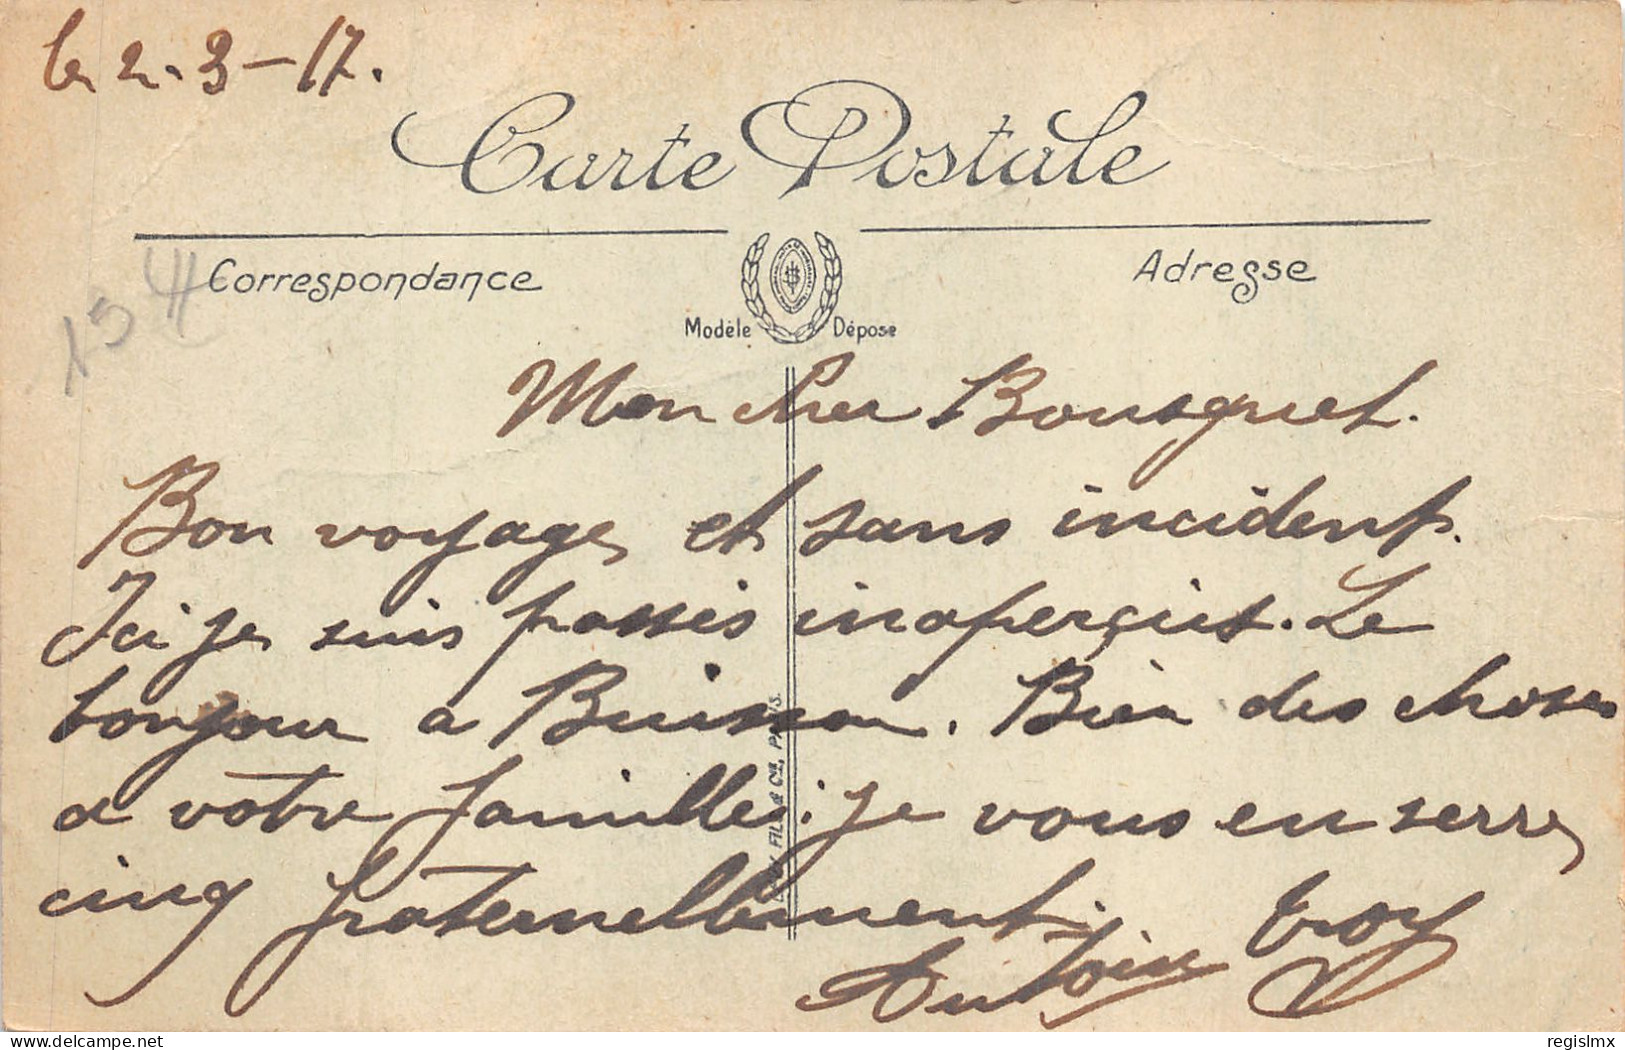 le 2-3-17.
Carte Postale
Correspondance
Adresse
Modèle Déposé
154
Mon cher Bousquet.
Bon voyage et sans incident.
Ici je suis passés inaperçus. Le
bonjour a Buisson. Bien des choses
a votre famille. je vous en serre
cinq fraternellement.
Antoine Troy
FILS & Cie, PARIS.
regislmx